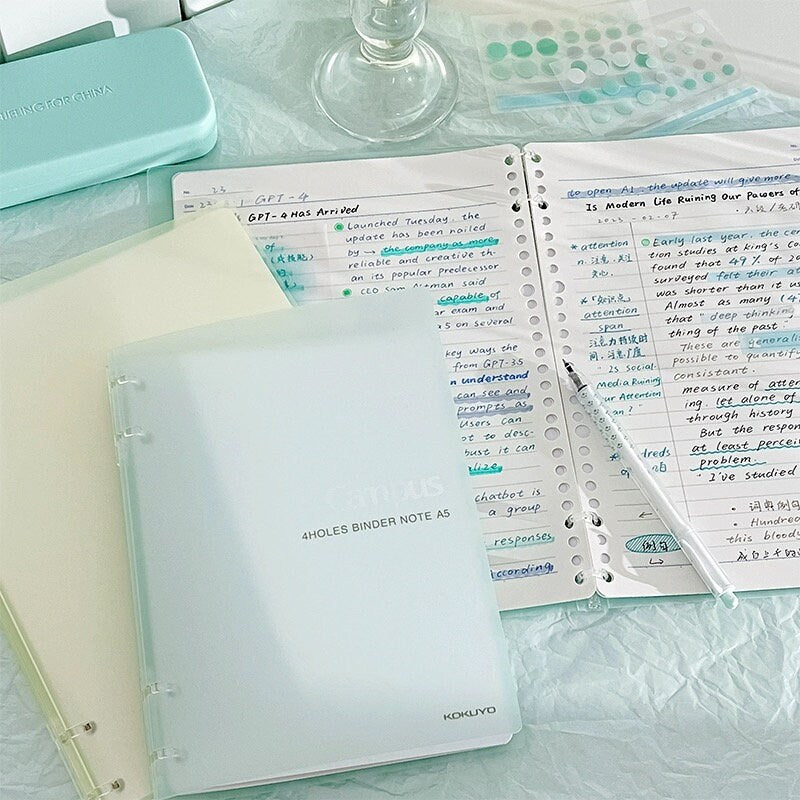 FUELING FOR CHINA
No. 23
GPT-4
GPT-4 Has Arrived
Launched Tuesday, the
update has been nailed
by → the company as more
reliable and creative th-
an its popular predecessor
CEO Sam Altman said
capable of
ar exam and
a 5 on several
key ways the
from GPT-3.5
understand
can see and
prompts as
Users can
ot to desc-
but it can
alize.
chatbot is
a group
responses
According
to open AI, the update will give more
Is Modern Life Ruining Our Powers of
2023-02-07
* attention
n. 注意, 关注
关心.
* "知识点"
attention
span
注意力持续时
间, 注意广度
"Is social
Media Ruining
our Attention
Span?"
例句
Early last year, the cen
tion studies at king's Co
found that 49% of 20
surveyed felt their at
was shorter than it us
Almost as many (4
that "deep thinking
thing of the past".
These are generali
possible to quantify
consistent.
measure of atten
ing. let alone of
through history
But the respon
at least percei
problem.
"I've studied
• Hundred
this bloody
campus
4HOLES BINDER NOTE A5
KOKUYO